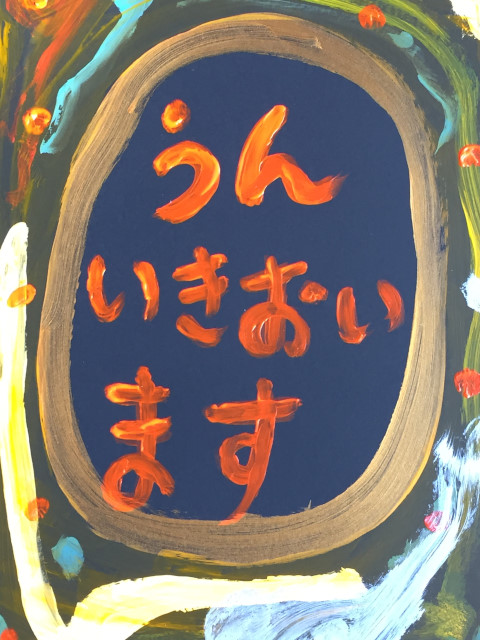 うん
いきおい
ます